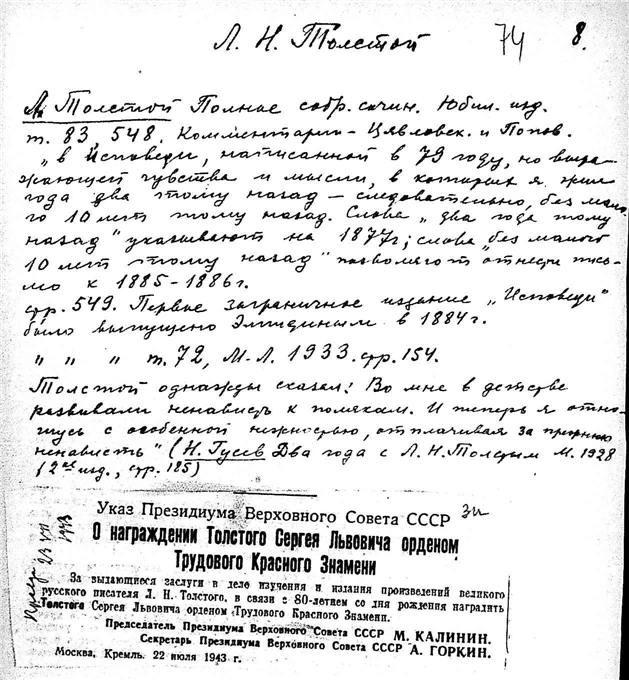 Л. Н. Толстой 74 8.
Л. Толстой Полное собр. сочин. Юбил. изд.
т. 83, 548. Комментарии – Цявловск. и Попов.
„в Исповеди, написанной в 79 году, но выра-
жающей чувства и мысли, в которых я жил
года два тому назад – следовательно, без мало-
го 10 лет тому назад. Слова „два года тому
назад" указывают на 1877 г; слова „без малого
10 лет тому назад" позволяют отнести пись-
мо к 1885-1886 г.
стр. 549. Первое заграничное издание „Исповеди"
было выпущено Элпидиным в 1884 г.
„ „ „ т. 72, М-Л. 1933. стр. 154.
Толстой однажды сказал: Во мне в детстве
развивали ненависть к полякам. И теперь я отно-
шусь с особенной нежностью, отплачивая за прежнюю
ненависть" (Н. Гусев Два года с Л. Н. Толстым М. 1928
(2ое изд., стр. 185)
Указ Президиума Верховного Совета СССР
О награждении Толстого Сергея Львовича орденом
Трудового Красного Знамени
За выдающиеся заслуги в деле изучения и издания произведений великого
русского писателя Л. Н. Толстого, в связи с 80-летием со дня рождения наградить
Толстого Сергея Львовича орденом Трудового Красного Знамени.
Председатель Президиума Верховного Совета СССР М. КАЛИНИН.
Секретарь Президиума Верховного Совета СССР А. ГОРКИН.
Москва, Кремль. 22 июля 1943 г.
23 VII
1943